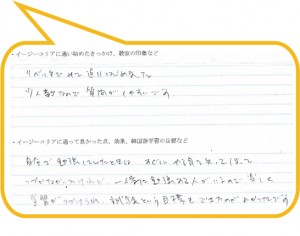 ・イージーコリアに通い始めたきっかけ、教室の印象など
リベルタでみて通いはじめました
少人数なので質問がしやすいです
・イージーコリアに通って良かった点、効果、韓国語学習の目標など
自分で勉強していたときは、すぐにやる気を失ってしまって
つづかなかったけれど、一緒に勉強する人がいるので楽しく
学習がつづけられ、という目標もできたのがよかったです